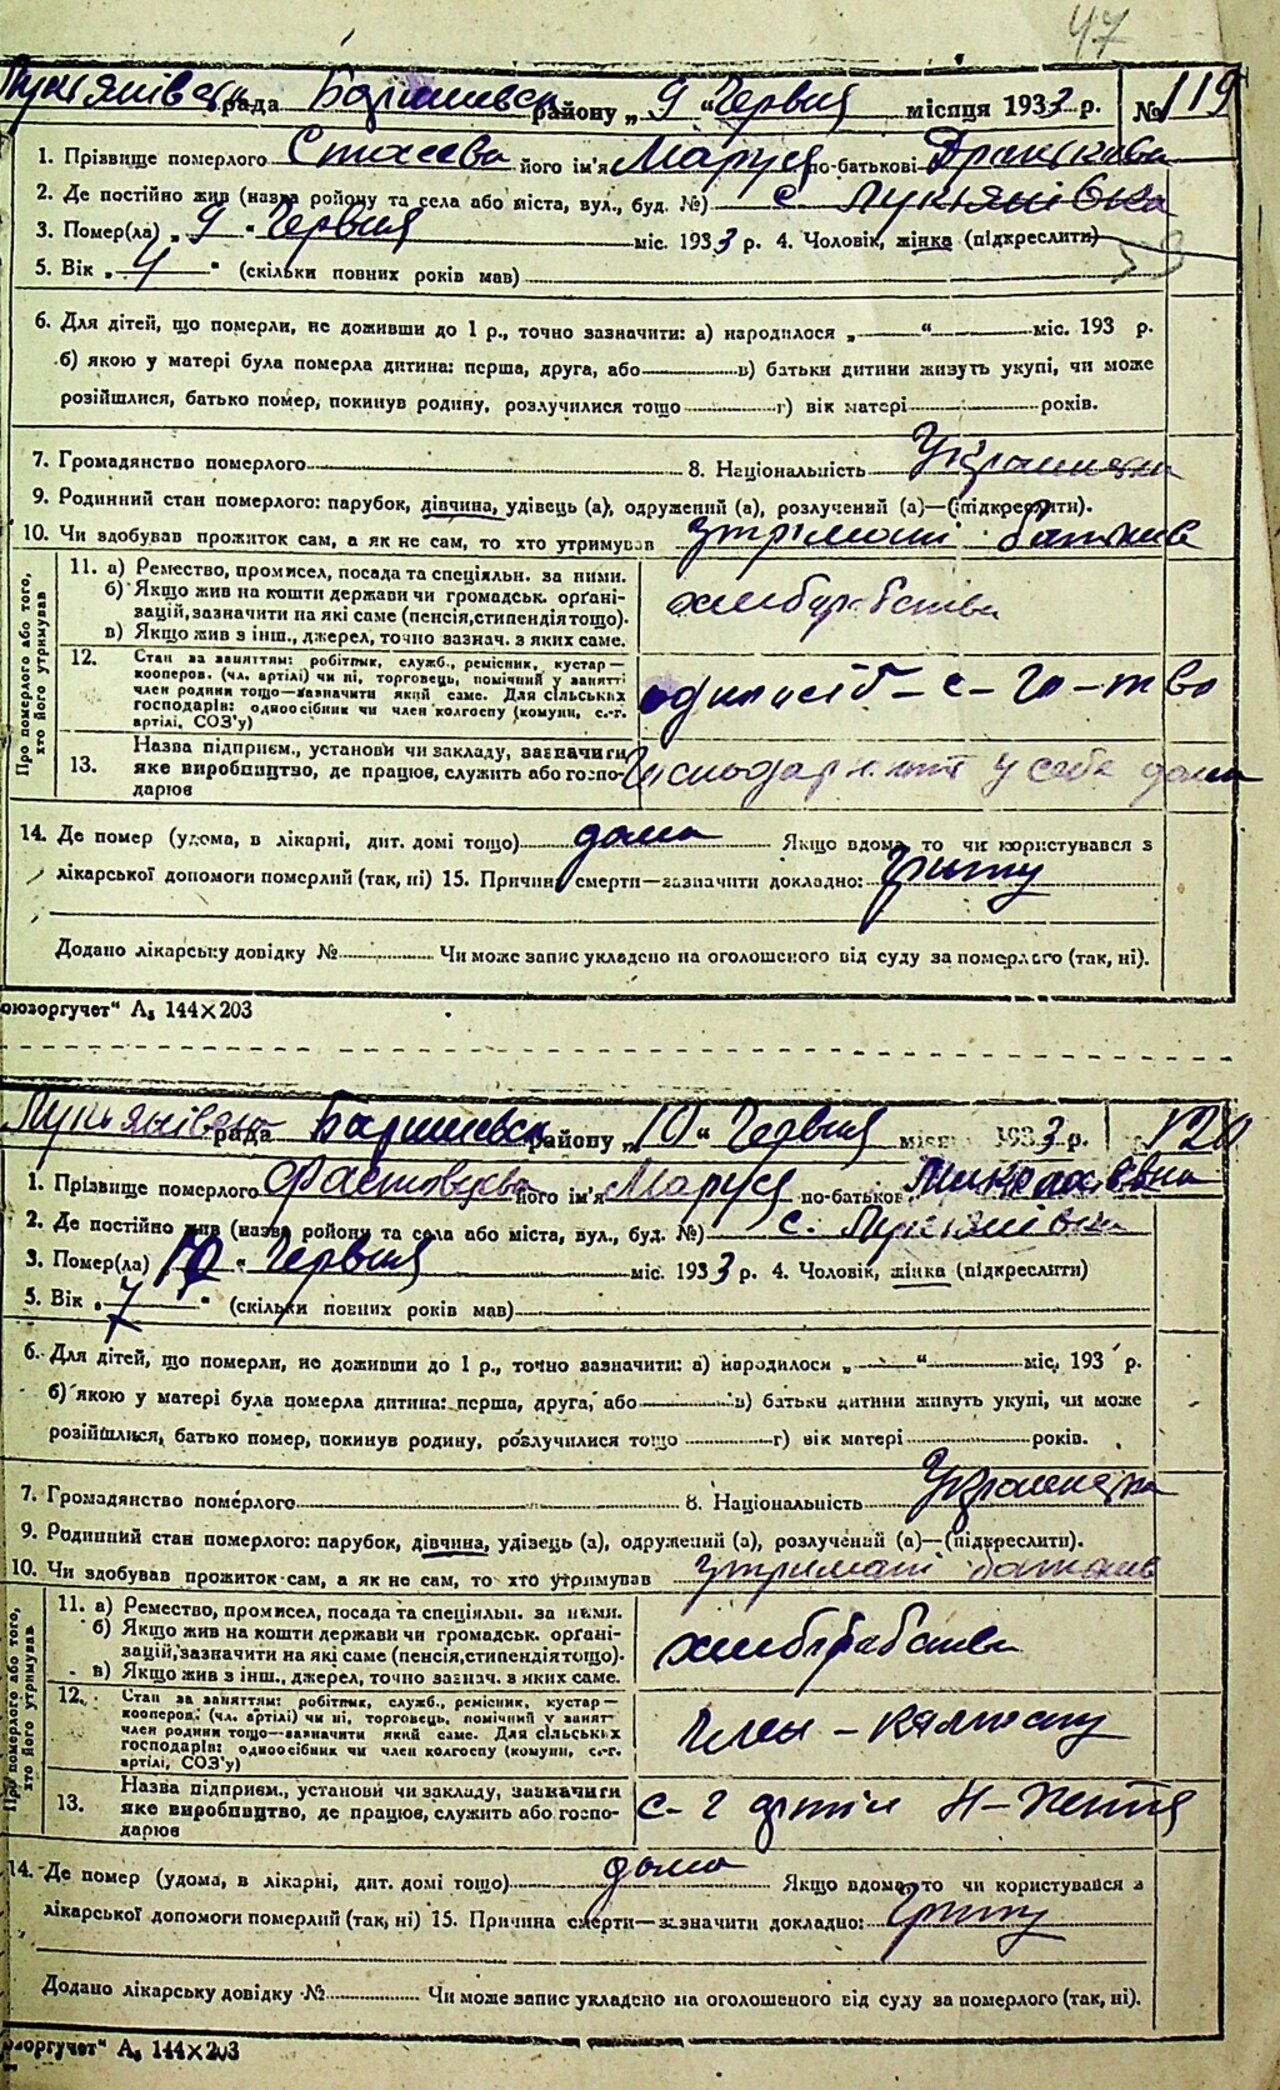 47
Лукянівська рада Баришевськ району „ 9 “ Червня місяця 1933 р. № 119
1. Прізвище померлого Стасєєва його ім'я Маруся по-батькові
2. Де постійно жив (назва ройону та села або міста, вул., буд. №) с. Лукянівка
3. Помер(ла) „ 9 “ Червня міс. 1933 р. 4. Чоловік, жінка (підкреслити)
5. Вік „ 4 “ (скільки повних років мав)
6. Для дітей, що померли, не доживши до 1 р., точно зазначити: а) народилося „ — “ міс. 193 р.
б) якою у матері була померла дитина: перша, друга, або в) батьки дитини живуть укупі, чи може
розійшлися, батько помер, покинув родину, розлучилися тощо г) вік матері років.
7. Громадянство померлого 8. Національність Українка
9. Родинний стан померлого: парубок, дівчина, удівець (а), одружений (а), розлучений (а)—(підкреслити).
10. Чи здобував прожиток сам, а як не сам, то хто утримував утримані батьків
Про померлого або того, хто його утримував
11. а) Ремество, промисел, посада та спеціяльн. за ними.
б) Якщо жив на кошти держави чи громадськ. орґані-
зацій, зазначити на які саме (пенсія, стипендія тощо).
в) Якщо жив з інш., джерел, точно зазнач. з яких саме.
хлиборобства
12. Стан за заняттям: робітник, служб., ремісник, кустар—
кооперов. (чл. артілі) чи ні, торговець, помічний у занятті
член родини тощо—зазначити який саме. Для сільських
господарів: одноосібник чи член колгоспу (комуни, с.-г.
артілі, СОЗ'у)
одиносіб - с - го - тво
13. Назва підприєм., установи чи закладу, зазначити
яке виробництво, де працюв, служить або госпо-
дарюв
у себе дома
14. Де помер (удома, в лікарні, дит. домі тощо) дома Якщо вдома, то чи користувався з
лікарської допомоги померлий (так, ні) 15. Причина смерти—зазначити докладно: Грипу
Додано лікарську довідку № Чи може запис укладено на оголошеного від суду за померлого (так, ні).
оюзоргучет“ А₅ 144×203
Лукьянівська рада Баришевськ району „ 10 “ Червня місяця 1933 р. № 120
1. Прізвище померлого Фастовцева його ім'я Маруся по-батькові Миколаєвна
2. Де постійно жив (назва ройону та села або міста, вул., буд. №) с. Лукянівка
3. Помер(ла) „ 10 “ Червня міс. 1933 р. 4. Чоловік, жінка (підкреслити)
5. Вік „ 7 “ (скільки повних років мав)
6. Для дітей, що померли, не доживши до 1 р., точно зазначити: а) народилося „ — “ міс. 193 р.
б) якою у матері була померла дитина: перша, друга, або в) батьки дитини живуть укупі, чи може
розійшлися, батько помер, покинув родину, розлучилися тощо г) вік матері років.
7. Громадянство померлого 8. Національність Українка
9. Родинний стан померлого: парубок, дівчина, удівець (а), одружений (а), розлучений (а)—(підкреслити).
10. Чи здобував прожиток сам, а як не сам, то хто утримував утримані батьків
Про померлого або того, хто його утримував
11. а) Ремество, промисел, посада та спеціяльн. за ними.
б) Якщо жив на кошти держави чи громадськ. орґані-
зацій, зазначити на які саме (пенсія, стипендія тощо).
в) Якщо жив з інш., джерел, точно зазнач. з яких саме.
хлиборобства
12. Стан за заняттям: робітник, служб., ремісник, кустар—
кооперов. (чл. артілі) чи ні, торговець, помічний у занятт
член родини тощо—зазначити який саме. Для сільських
господарів: одноосібник чи член колгоспу (комуни, с.-г.
артілі, СОЗ'у)
член -
13. Назва підприєм., установи чи закладу, зазначити
яке виробництво, де працюв, служить або госпо-
дарюв
с - г артіл Н -
14. Де помер (удома, в лікарні, дит. домі тощо) дома Якщо вдома, то чи користувався з
лікарської допомоги померлий (так, ні) 15. Причина смерти—зазначити докладно: Грипу
Додано лікарську довідку № Чи може запис укладено на оголошеного від суду за померлого (так, ні).
юзоргучет“ А₅ 144×203